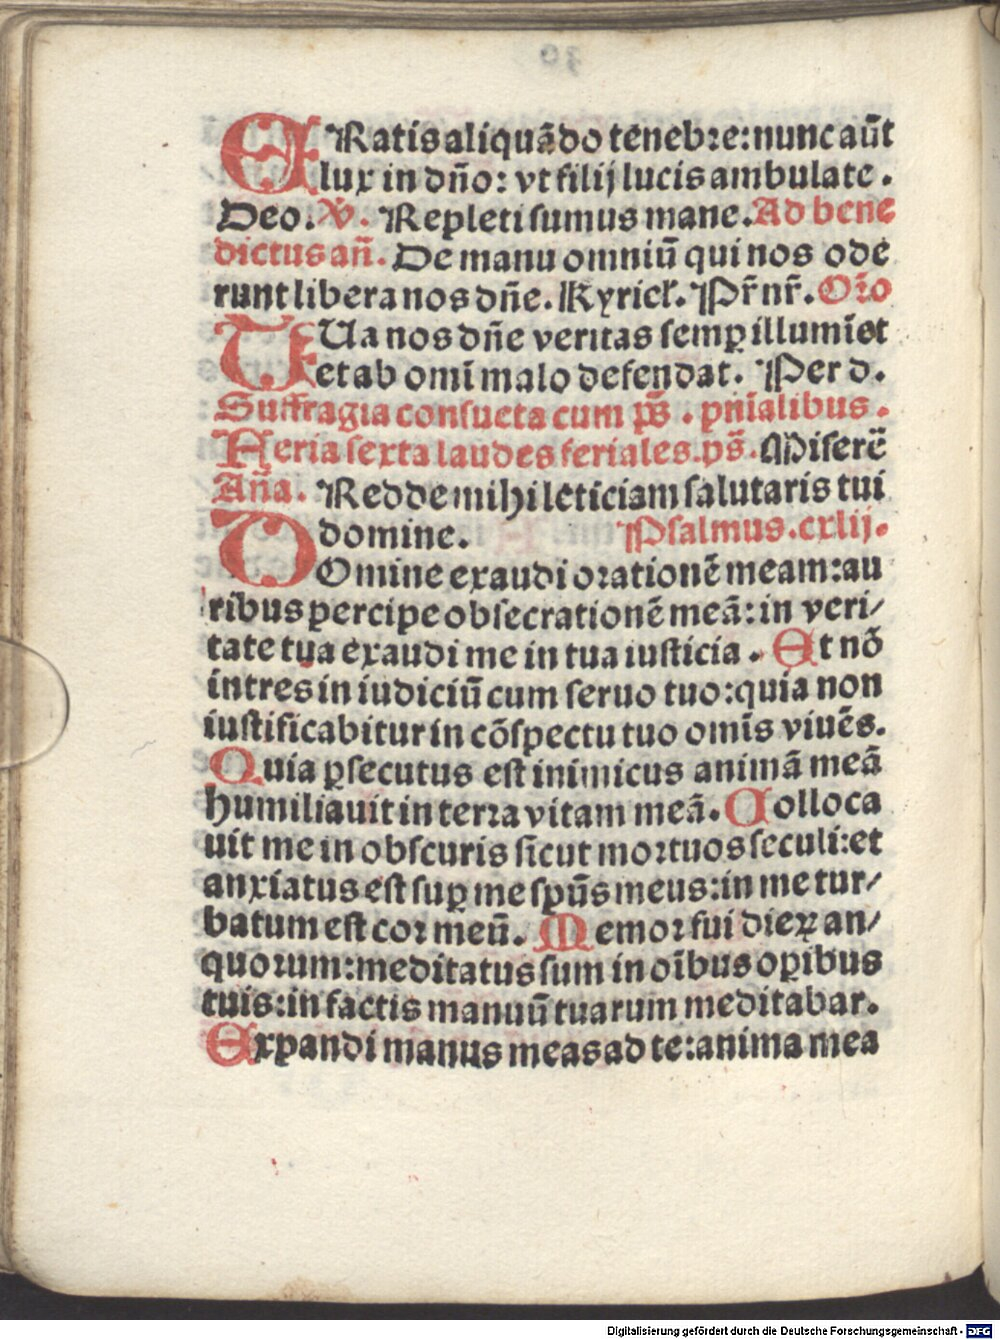 ERatis aliquãdo tenebre: nunc aũt
lux in dño: vt filij lucis ambulate.
Deo. v̄. Repleti sumus mane. Ad bene
dictus añ. De manu omniũ qui nos ode
runt libera nos dñe. Kyriel. Pr̃ nr̃. Orõ
TUa nos dñe veritas semꝑ illumīet
et ab omī malo defendat. Per d.
Suffragia consueta cum ps̄. pñialibus.
Feria sexta laudes feriales. ps̄. Miserē
Aña. Redde mihi leticiam salutaris tui
domine. Psalmus. cxlij.
DOmine exaudi orationẽ meam: au
ribus percipe obsecrationẽ meã: in veri/
tate tua exaudi me in tua iusticia. Et nõ
intres in iudiciũ cum seruo tuo: quia non
iustificabitur in cõspectu tuo omīs viuẽs.
Quia ꝑsecutus est inimicus animã meã
humiliauit in terra vitam meã. Colloca
uit me in obscuris sicut mortuos seculi: et
anxiatus est suꝑ me spũs meus: in me tur/
batum est cor meũ. Memor fui dieꝝ an/
quorum: meditatus sum in oĩbus oꝑibus
tuis: in factis manuũ tuarum meditabar.
Expandi manus meas ad te: anima mea
Digitalisierung gefördert durch die Deutsche Forschungsgemeinschaft - DFG